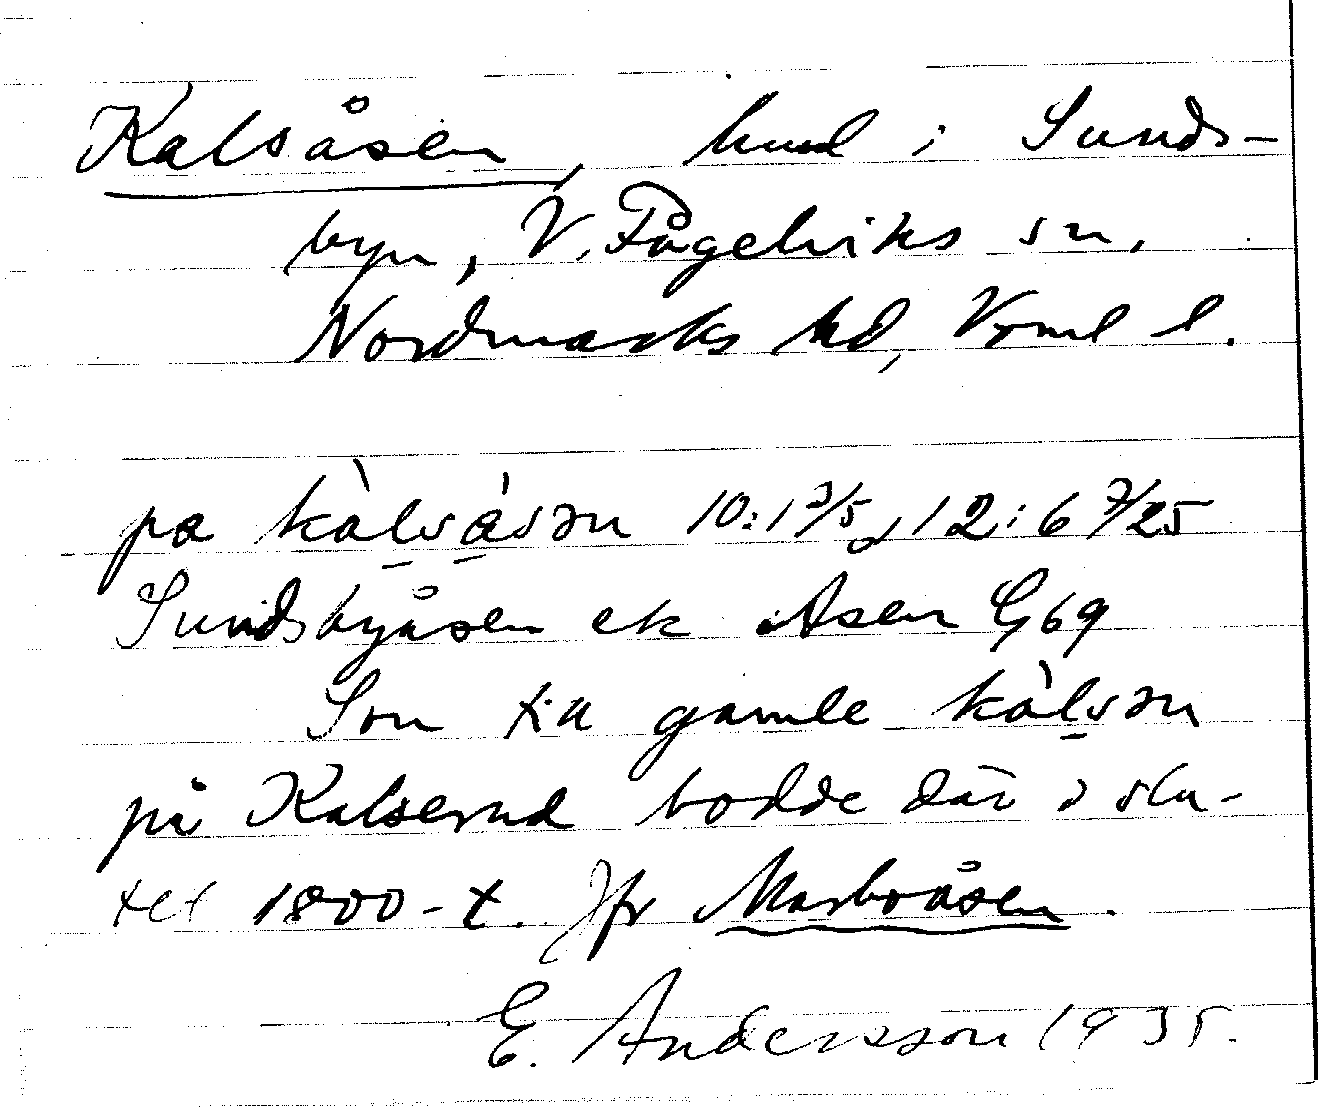 Kalsåsen, hmd i Sunds-
byn, V. Fågelviks sn,
Nordmarks hd, Vrml l.
pa kàlsásən 10:1 3/5, 12:6 7/25
Sundsbyåsen ek Åsen G69
Son till gamle kàlsən
på Kalserud bodde där i slu-
tet 1800-t. Jfr Marboåsen.
E. Andersson 1935.